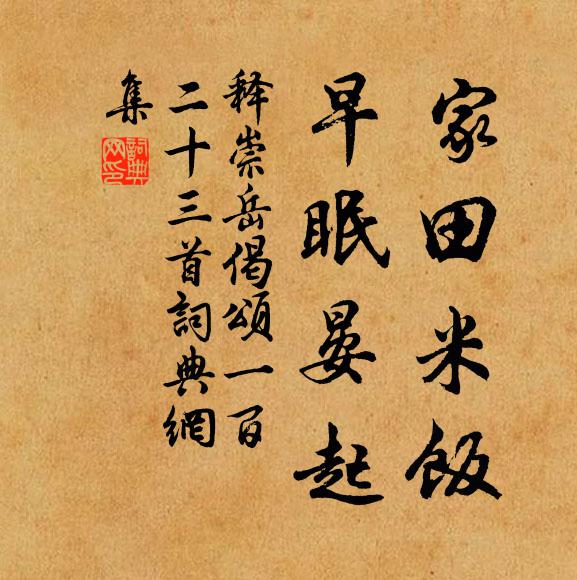 家田米飯
早眠晏起
释崇岳偈頌一百
二十三首詞典網
集
詞典
网印